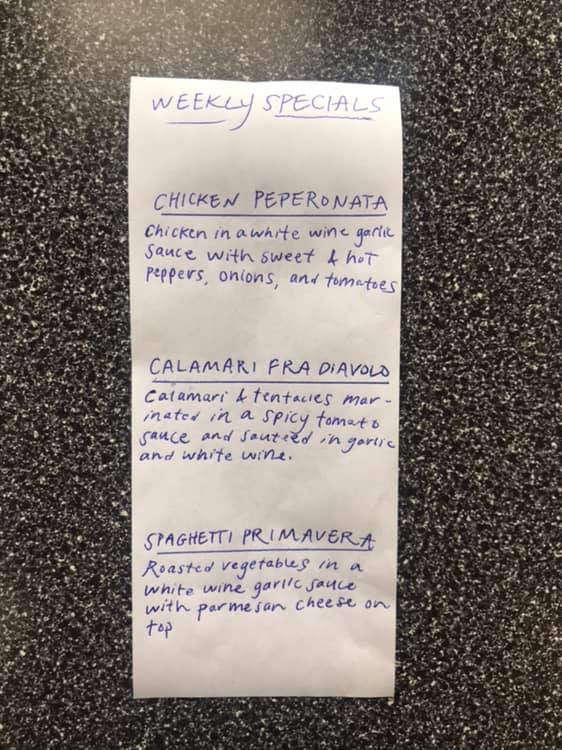 WEEKLY SPECIALS
CHICKEN PEPERONATA
Chicken in a white wine garlic
sauce with sweet & hot
peppers, onions, and tomatoes
CALAMARI FRA DIAVOLO
Calamari & tentacles mar-
inated in a spicy tomato
sauce and sautéed in garlic
and white wine.
SPAGHETTI PRIMAVERA
Roasted vegetables in a
white wine garlic sauce
with parmesan cheese on
top